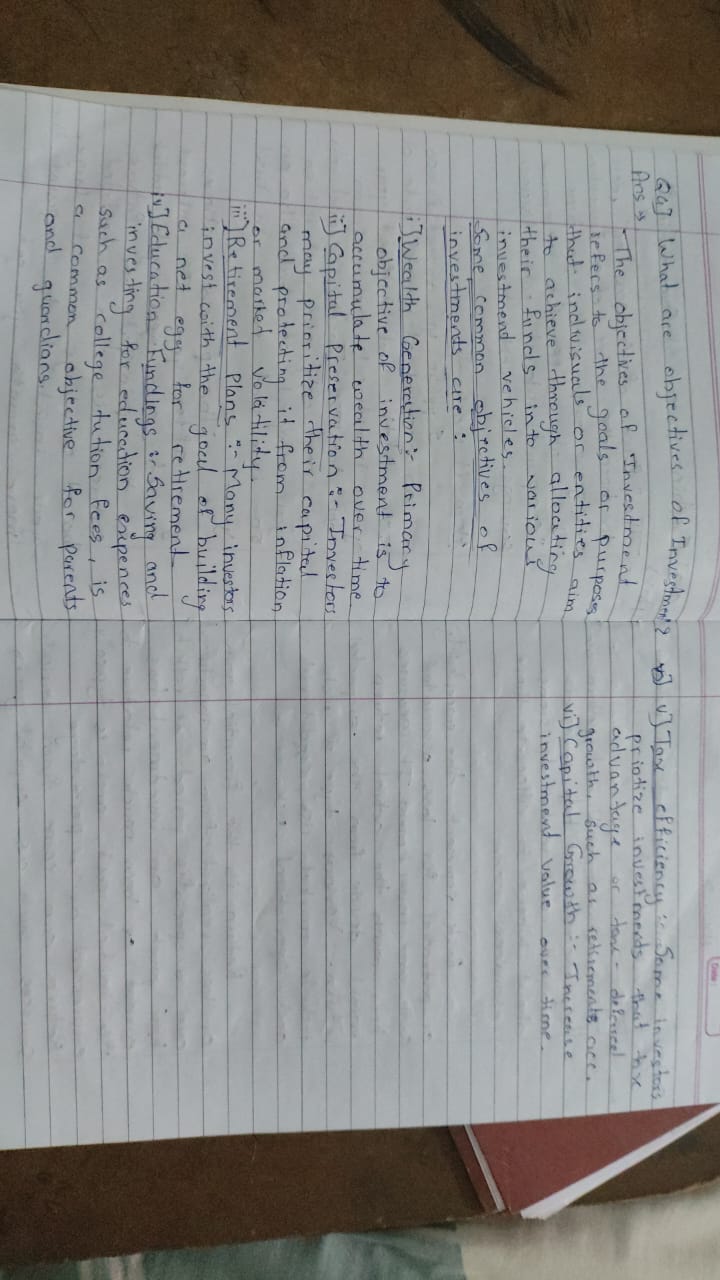 Q4] What are objectives of Investment?
Ans →
The objectives of Investment
refers to the goals or purposes
that indivisuals or entities aim
to achieve through allocating
their funds into various
investment vehicles.
Some common objectives of
investments are :
i] Wealth Generation :- Primary
objective of investment is to
accumulate wealth over time
ii] Capital Preservation :- Investors
may prioritize their capital
and protecting it from inflation
or market volatility.
iii] Retirement Plans :- Many investors
invest with the goal of building
a net egg for retirement
iv] Education Fundings :- Saving and
investing for education expences
such as college tution fees, is
a common objective for parents
and guardians.
Date :
v] Tax efficiency :- Some investors
priotize investments that tax
advantage or tax-deferred
growth, such as retirements acc.
vi] Capital Growth :- Increase
investment value over time.